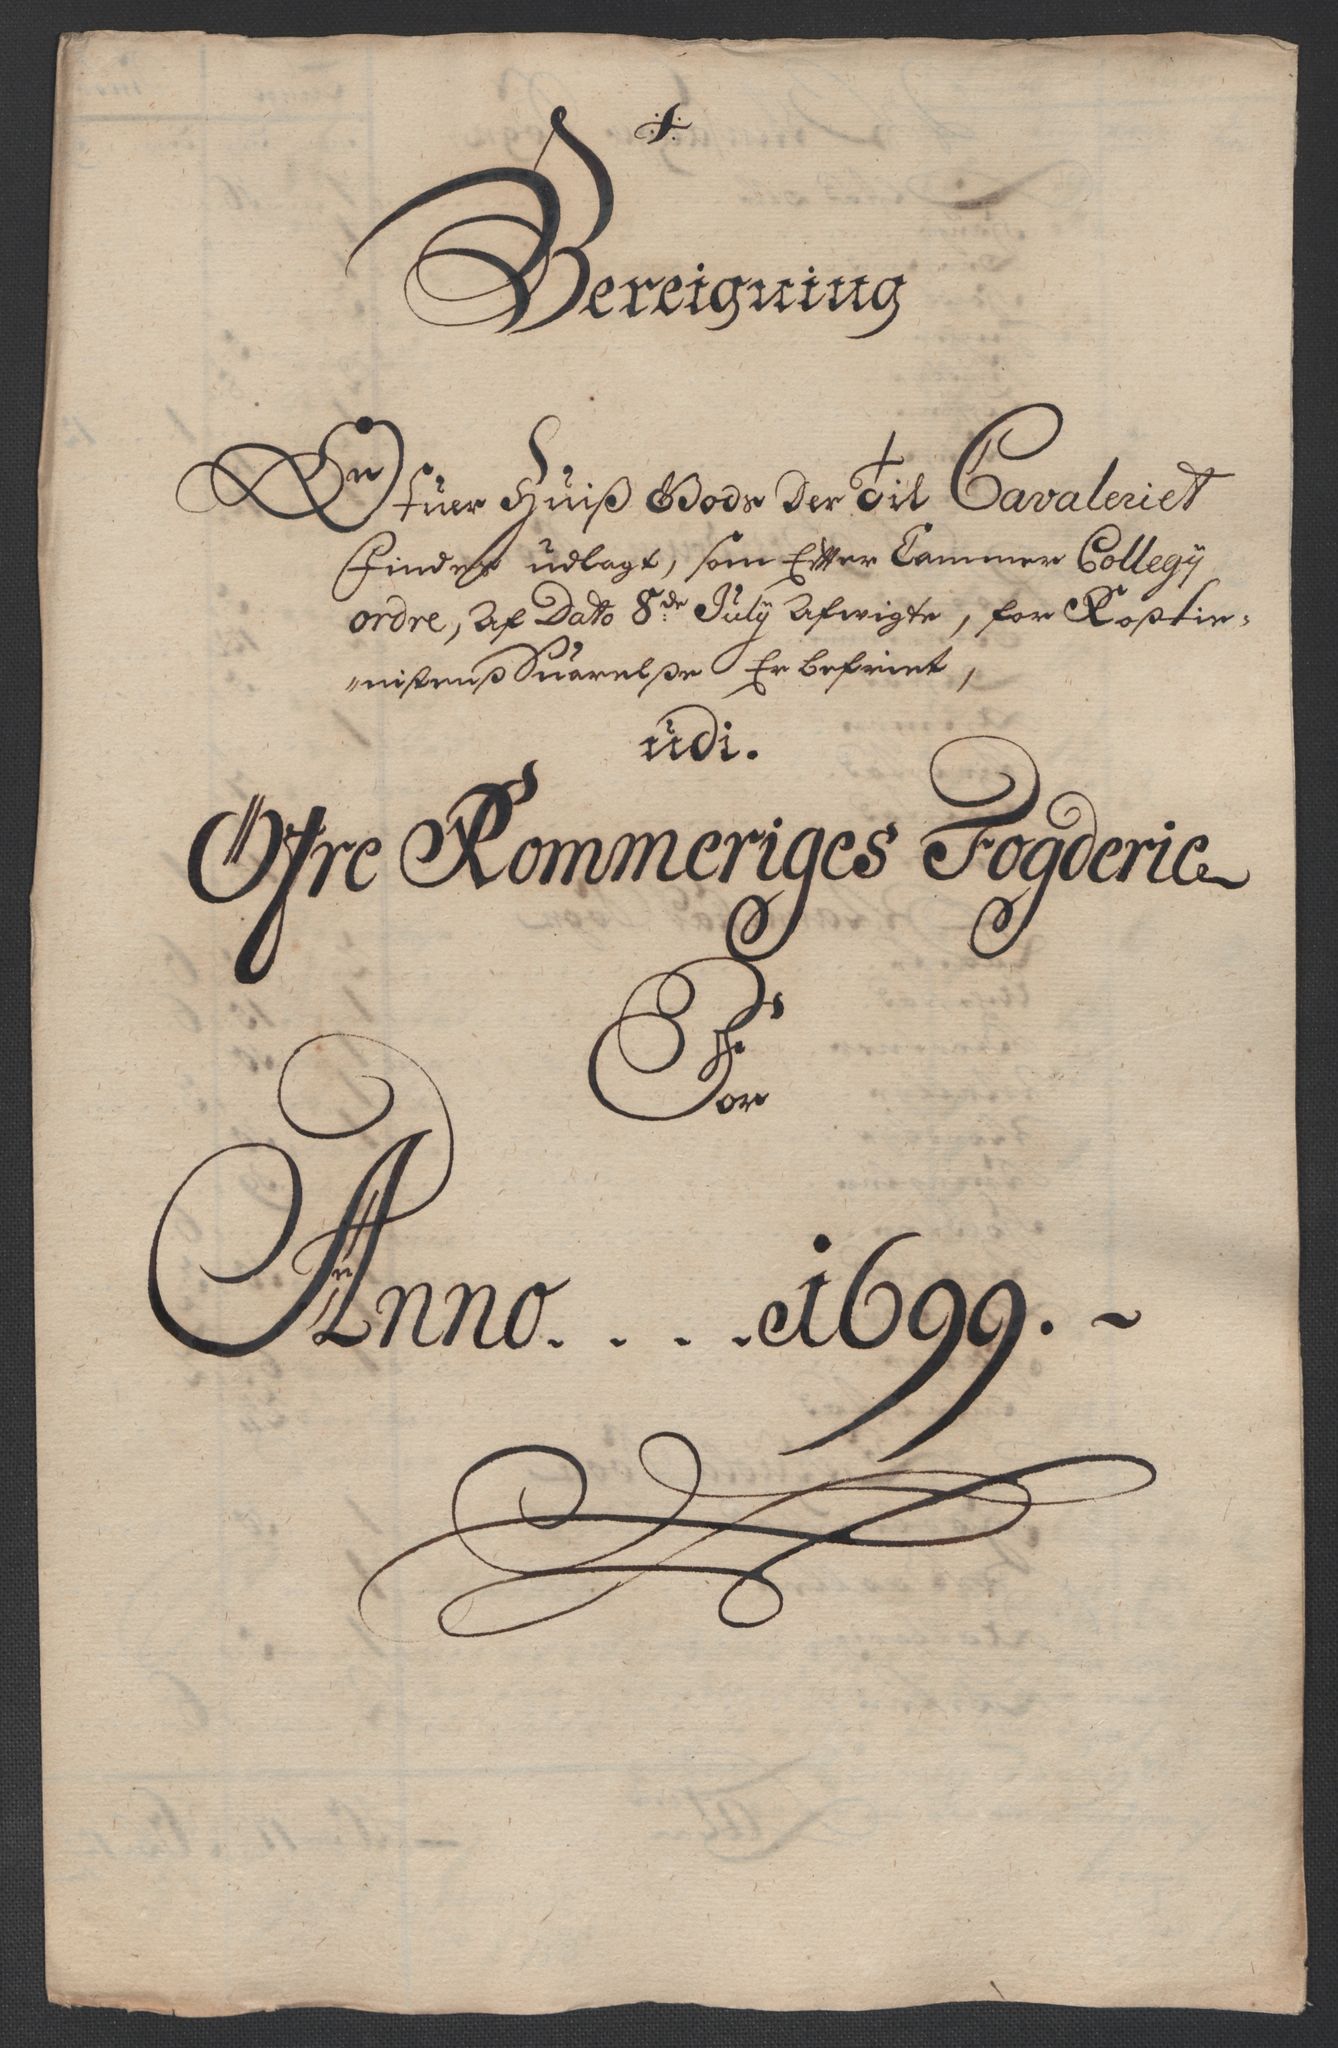 Bereigning
Ofuer Huiß Gods der til Cavaleriet
findes udlagt, som Efter Cammer Collegy
ordre, af Dato 8de July afwigte, for Roßtie-
nistens Suarelße Er befriet,
udi.
Øfre Rommeriges Fogderie
For
Anno . . . . 1699. ~